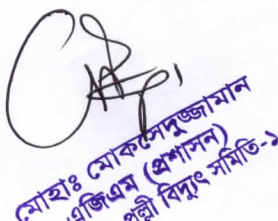 মোহাঃ মোকসেদুজ্জামান
এজিএম (প্রশাসন)
পল্লী বিদ্যুৎ সমিতি-১